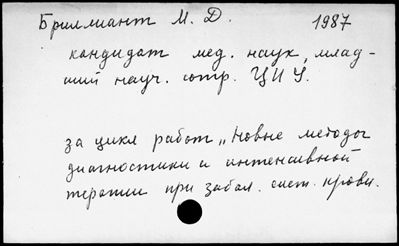 Бриллиант М. Д. 1987
кандидат мед. наук, млад-
ший науч. сотр. ЦИУ.
за цикл работ „Новые методы
диагностики и интенсивной
терапии при забол. сист. крови.